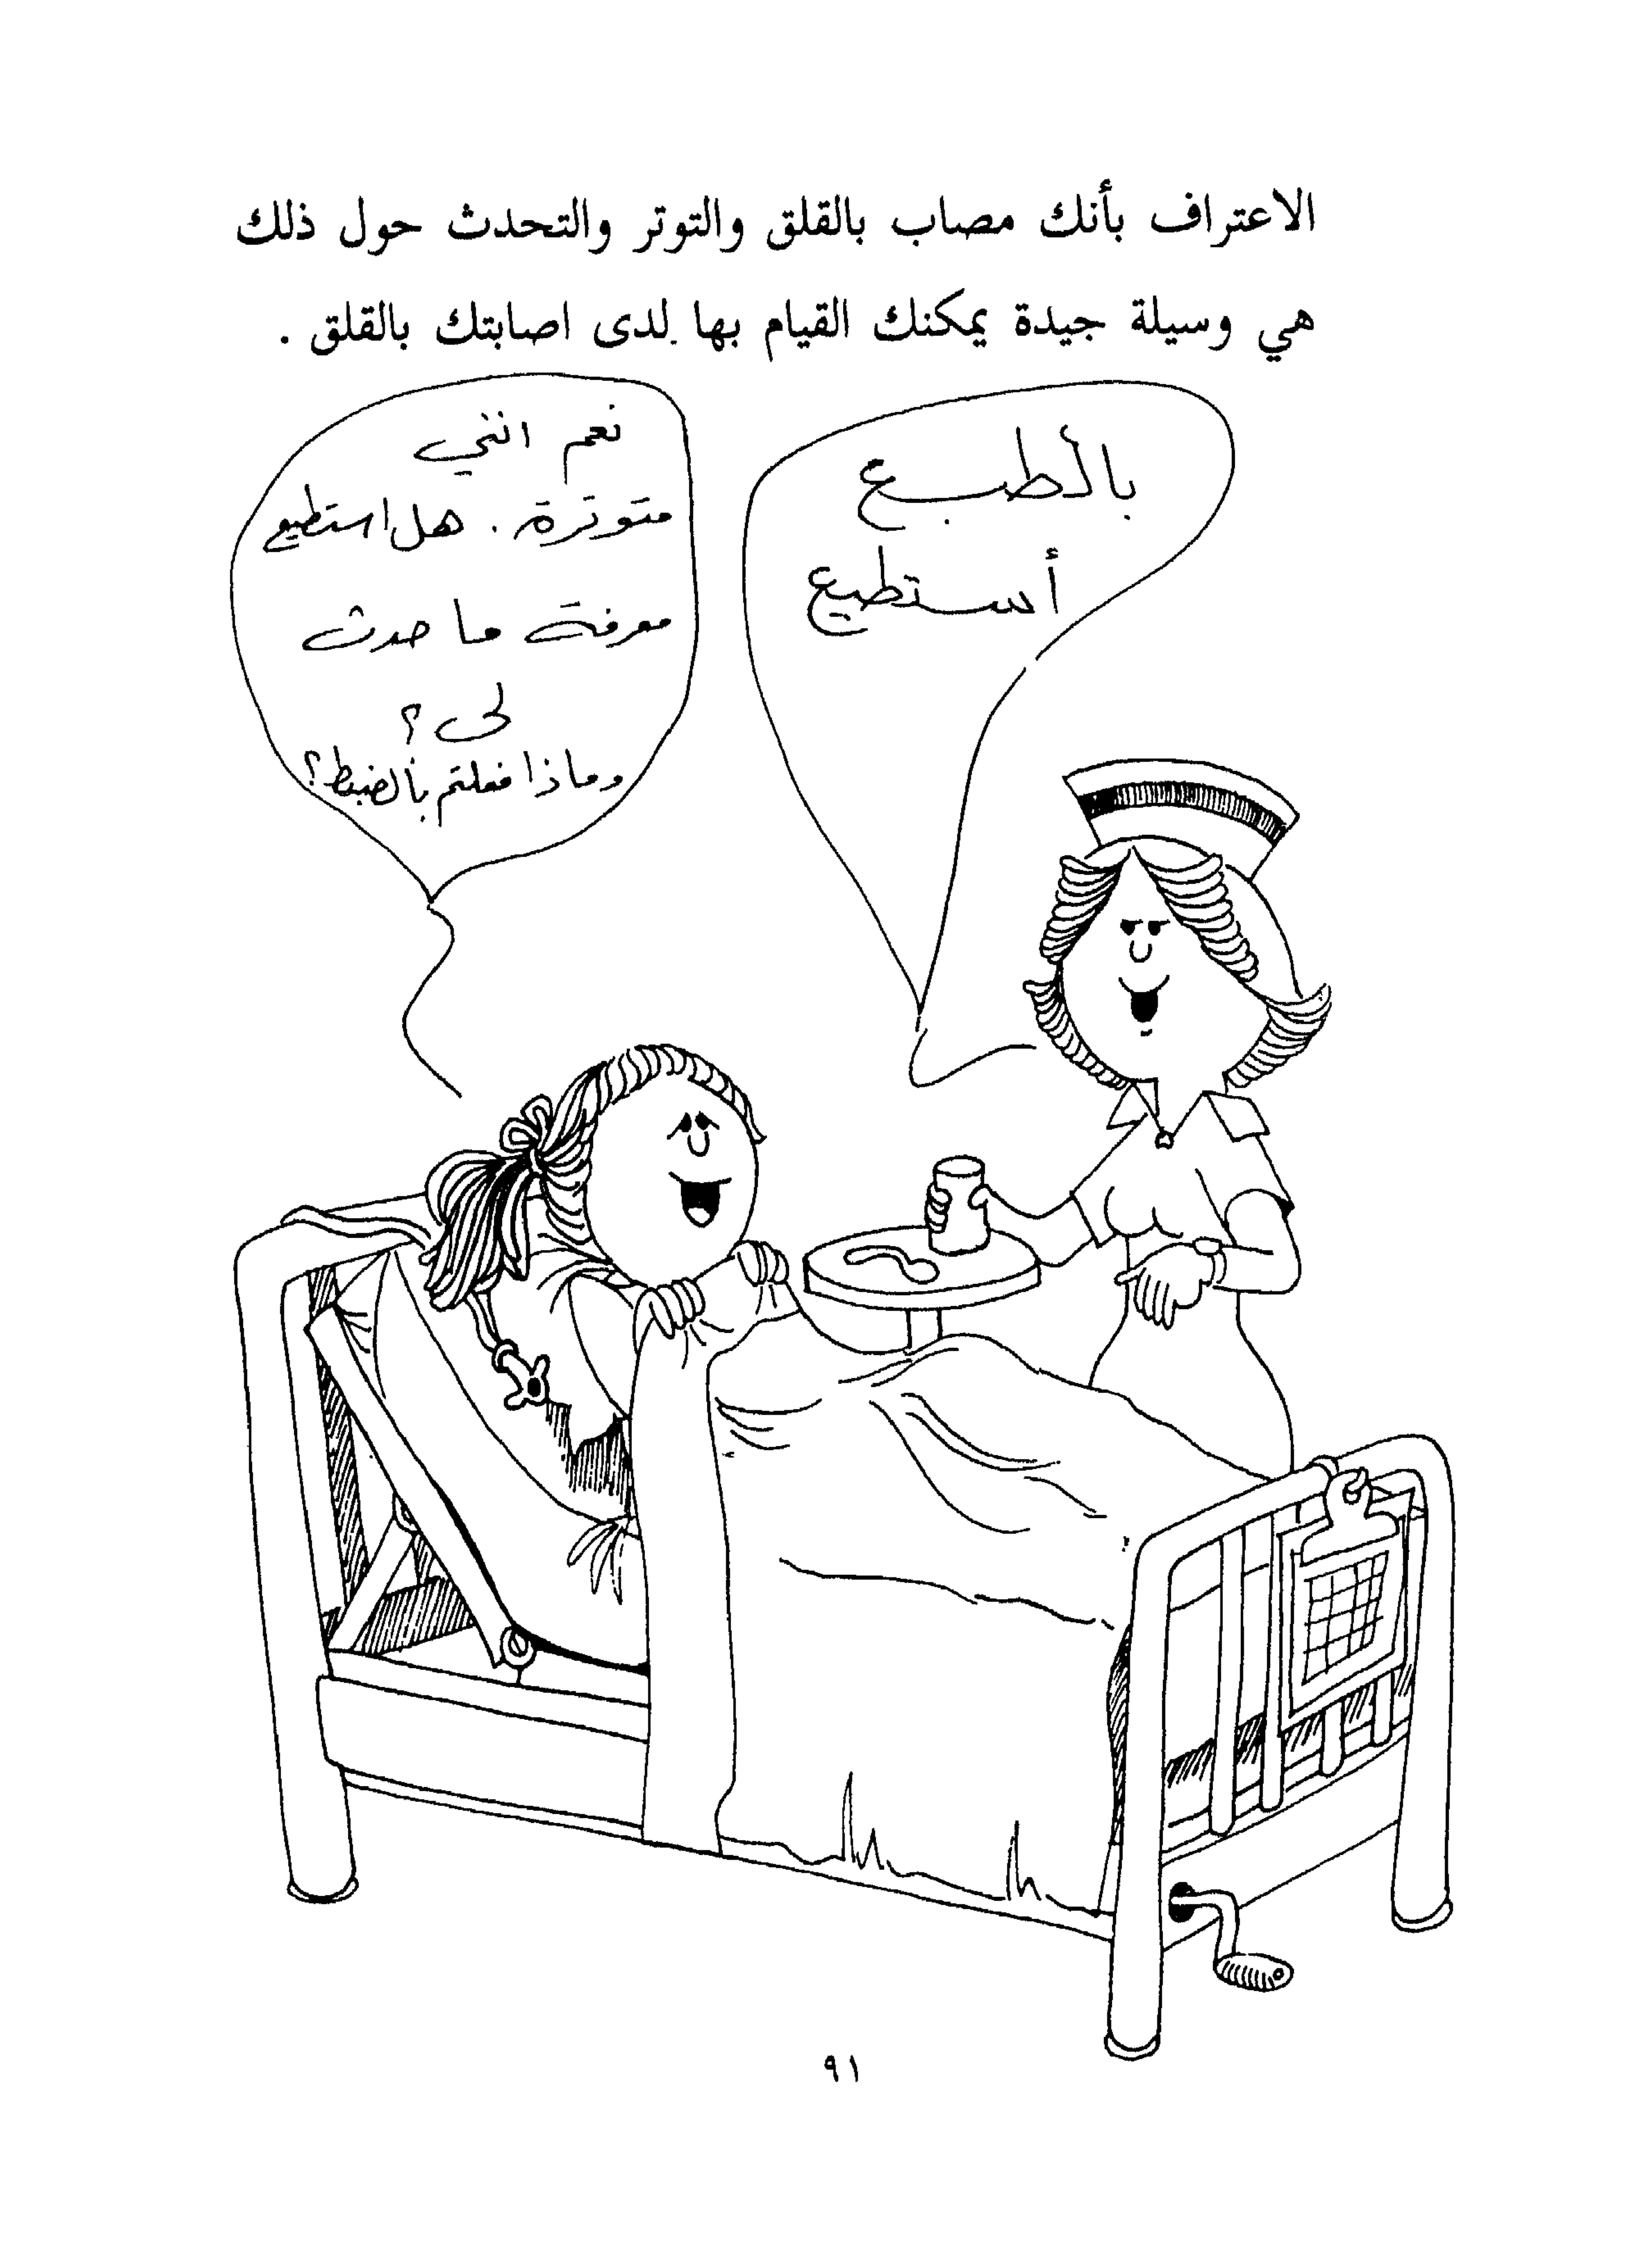 الاعتراف بأنك مصاب بالقلق والتوتر والتحدث حول ذلك
هي وسيلة جيدة يمكنك القيام بها لدى اصابتك بالقلق .
بالطبع
أستطيع
نعم انني
متوترة . هل استطيع
معرفة ما حدث
لي ؟
وماذا فعلتم بالضبط ؟
٩١